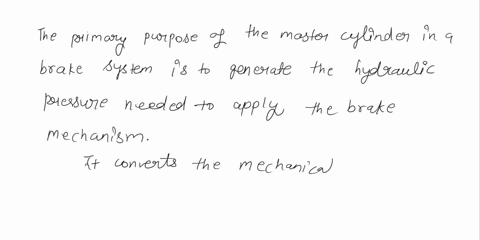 The primary purpose of the master cylinder in a
brake system is to generate the hydraulic
pressure needed to apply the brake
mechanism.
It converts the mechanical